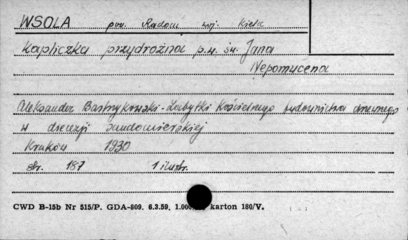 WSOLA pow. Radom woj. Kielc
Kapliczka przydrożna p.w. św. Jana
Nepomucena
Aleksander Bastrzykowski - Zabytki Kościelnego budownictwa drewnianego
w diecezji Sandomierskiej
Kraków 1930
str. 187 1 ilustr.
CWD B-15b Nr 515/P. GDA-809. 6.3.59. 1.000 karton 180/V.